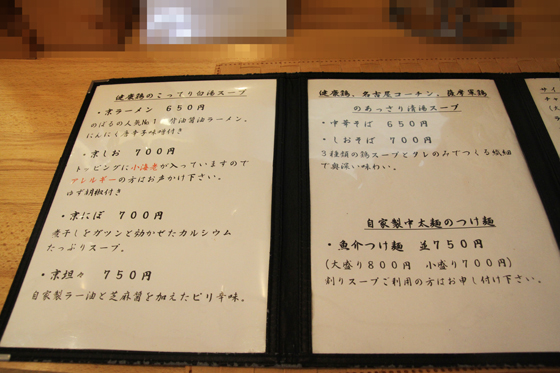 健康鶏のこってり白湯スープ
・京ラーメン 650円
のぼるの人気No1 背油醤油ラーメン。
にんにく唐辛子味噌付き
・京しお 700円
トッピングに小海老が入っていますので
アレルギーの方はお声かけ下さい。
ゆず胡椒付き
・京にぼ 700円
煮干しをガツンと効かせたカルシウム
たっぷりスープ。
・京担々 750円
自家製ラー油と芝麻醤を加えたピリ辛味。
健康鶏、名古屋コーチン、薩摩家鶏
のあっさり清湯スープ
・中華そば 650円
・しおそば 700円
3種類の鶏スープとダレのみでつくる繊細
で奥深い味わい。
自家製中太麺のつけ麺
・魚介つけ麺 並750円
(大盛り800円 小盛り700円)
割りスープご利用の方はお申し付け下さい。
サイ